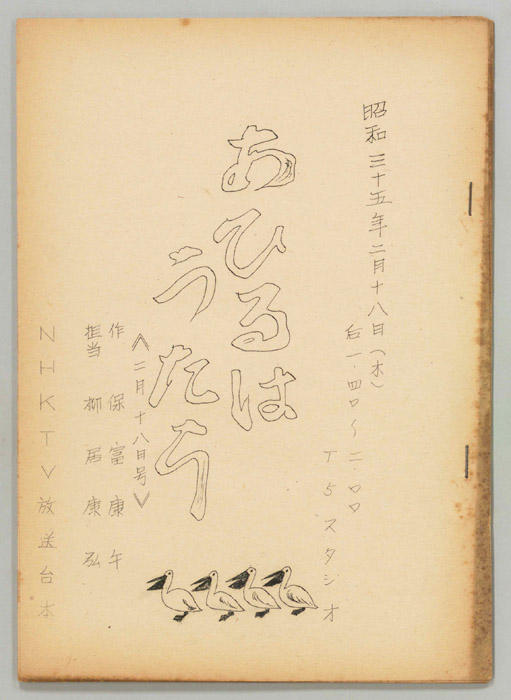 昭和三十五年二月十八日（木）
后一.四〇〜二.〇〇
T5スタジオ
あひるは
うたう
《二月十八日号》
作 保富康午
担当 柳居康弘
NHKTV放送台本